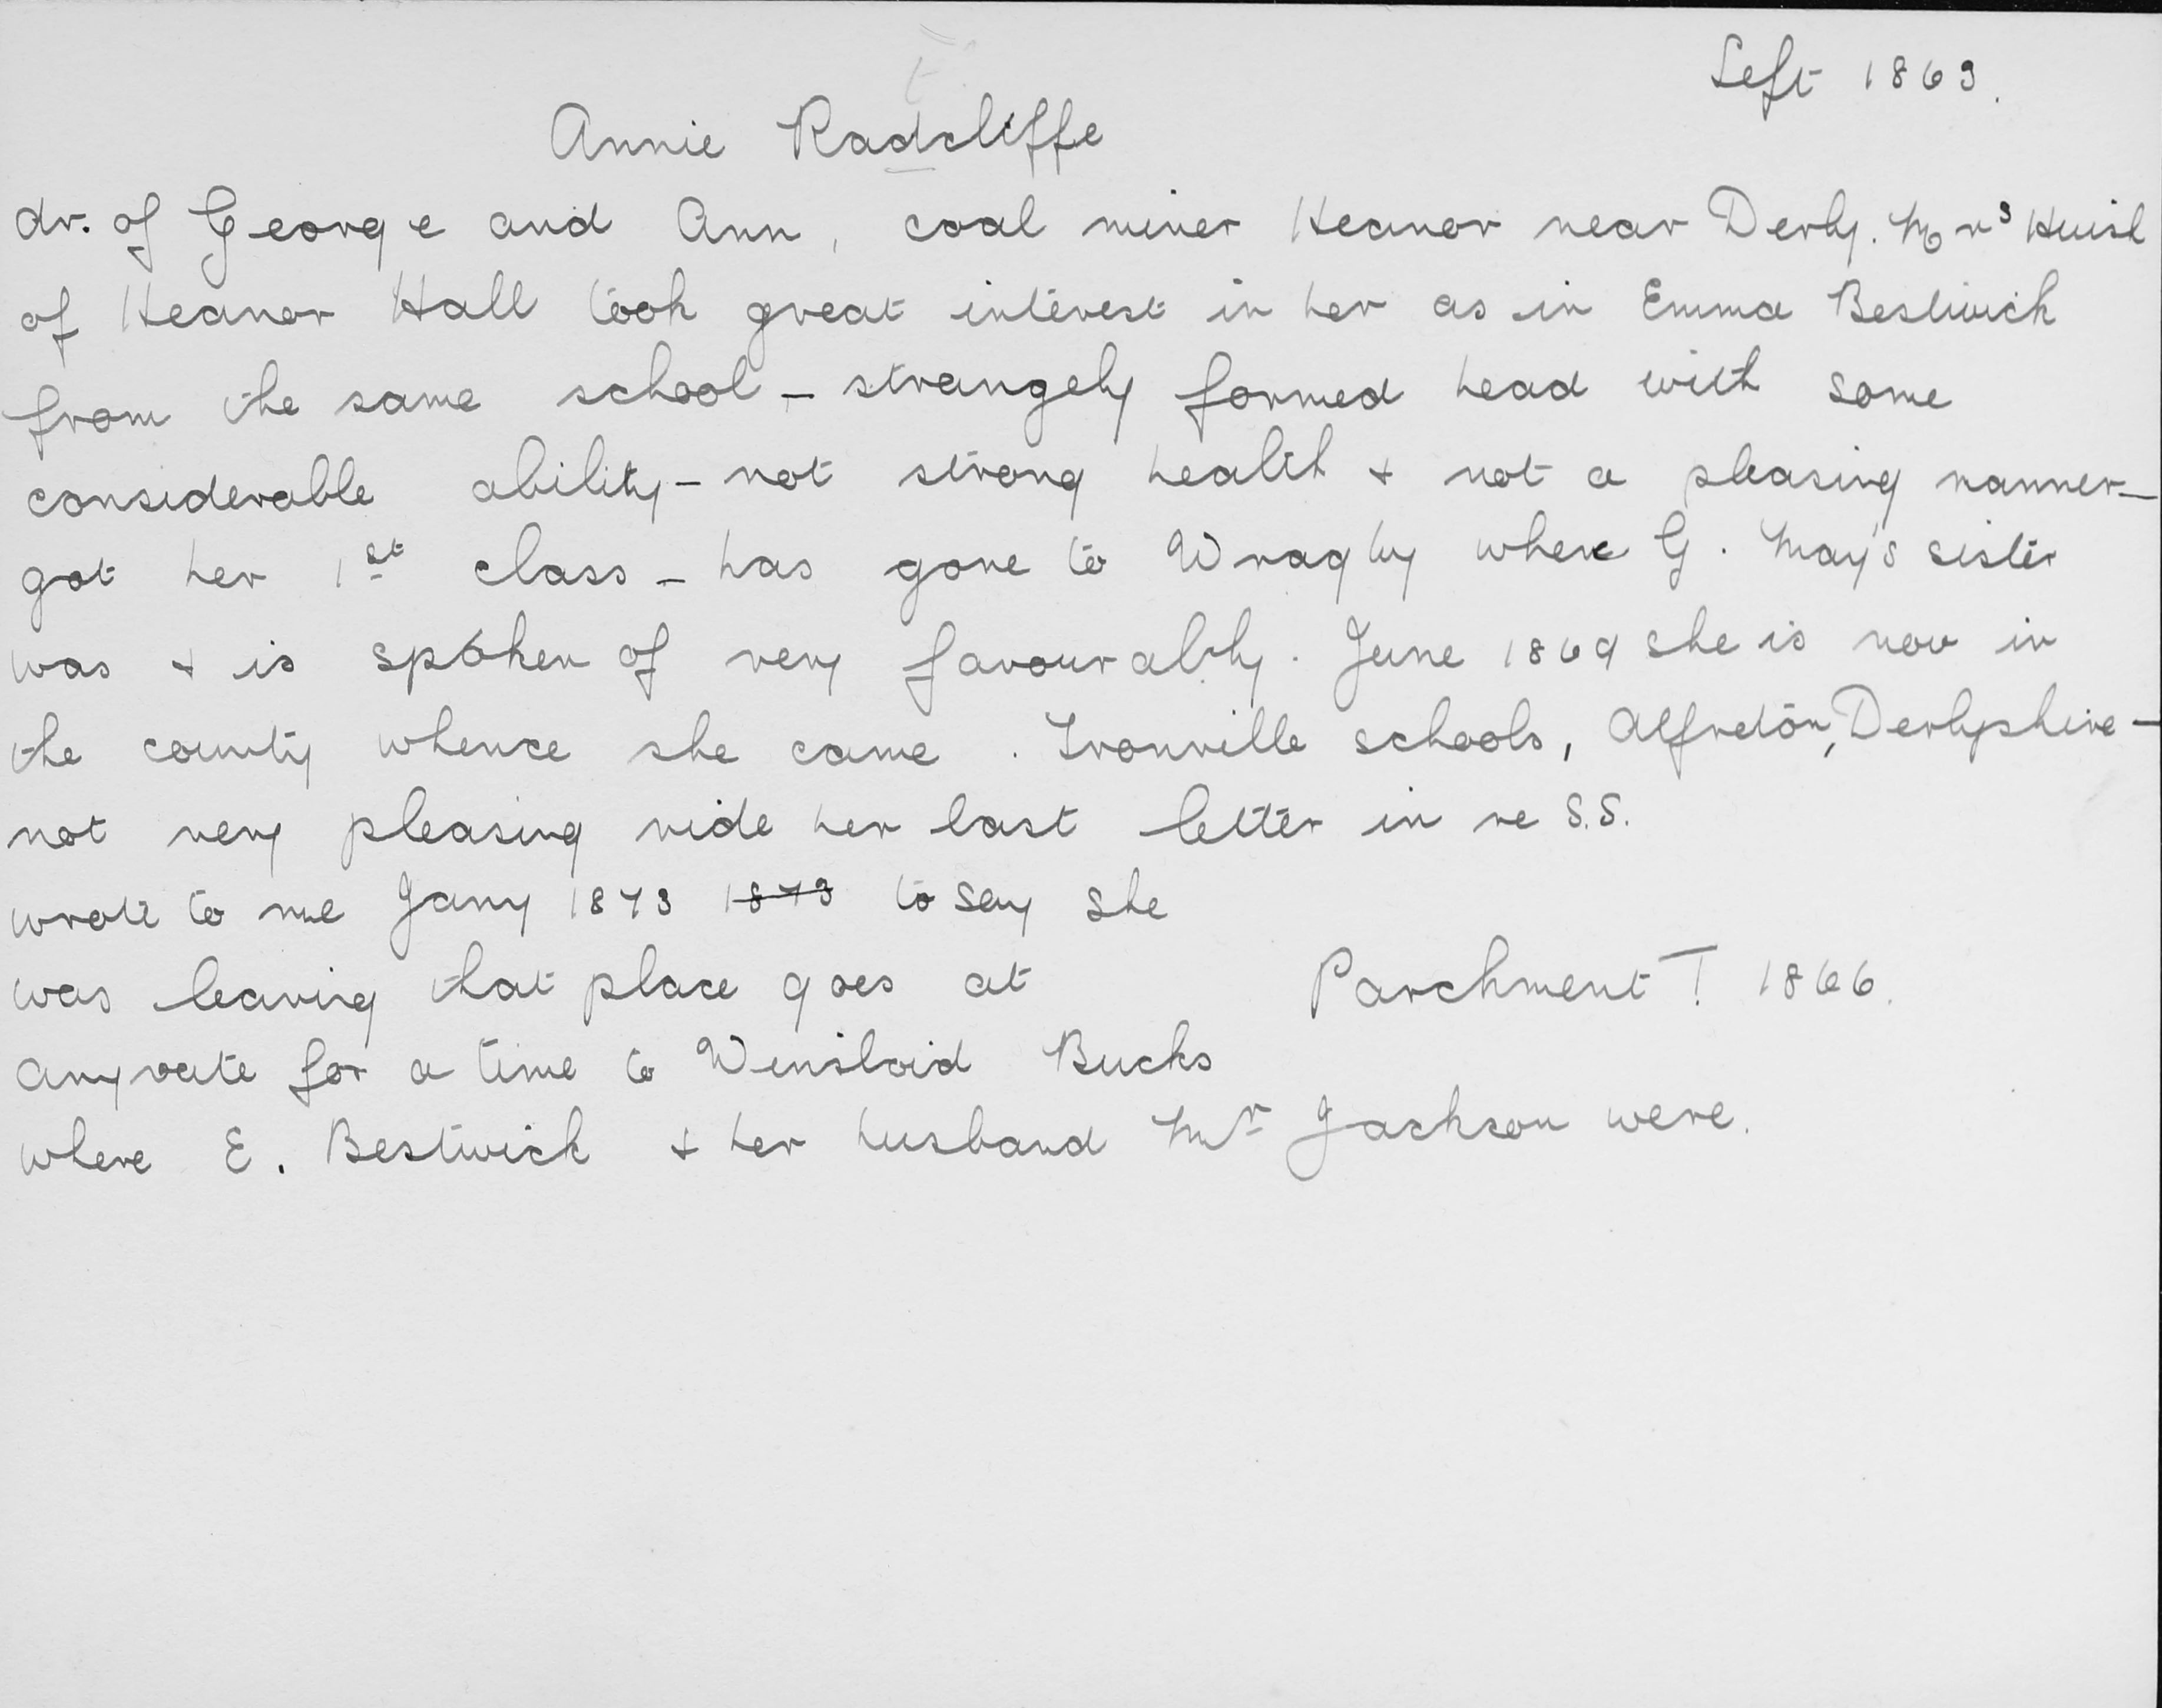 Left 1863.
t
Annie Radcliffe
dr. of George and Ann, coal miner Heanor near Derby. Mrs Huish
of Heanor Hall took great interest in her as in Emma Bestwick
from the same school - strangely formed head with some
considerable ability - not strong health + not a pleasing manner -
got her 1st class - has gone to Wragby where G. May's sister
was + is spoken of very favourably. June 1869 she is now in
the county whence she came. Ironville schools, Alfreton, Derbyshire -
not very pleasing vide her last letter in re S.S.
wrote to me Jany 1873 1873 to say she
was leaving that place goes at
Parchment T 1866.
anyrate for a time to Bucks
where E. Bestwick + her husband Mr Jackson were.